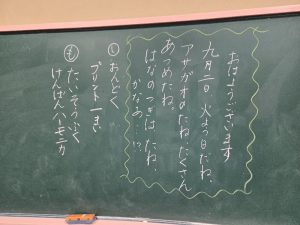 おはようございます
九月二日 火よう日だね。
アサガオのたね、たくさん
あつめたね。
はなのつぎは たね、
かなあ…!?
し おんどく
プリント一まい
も たいそうふく
けんばんハーモニカ